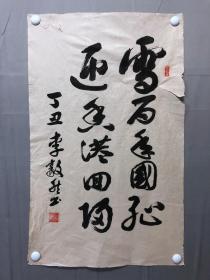 雪百年國耻
迎香港回歸
丁丑 李毅 书